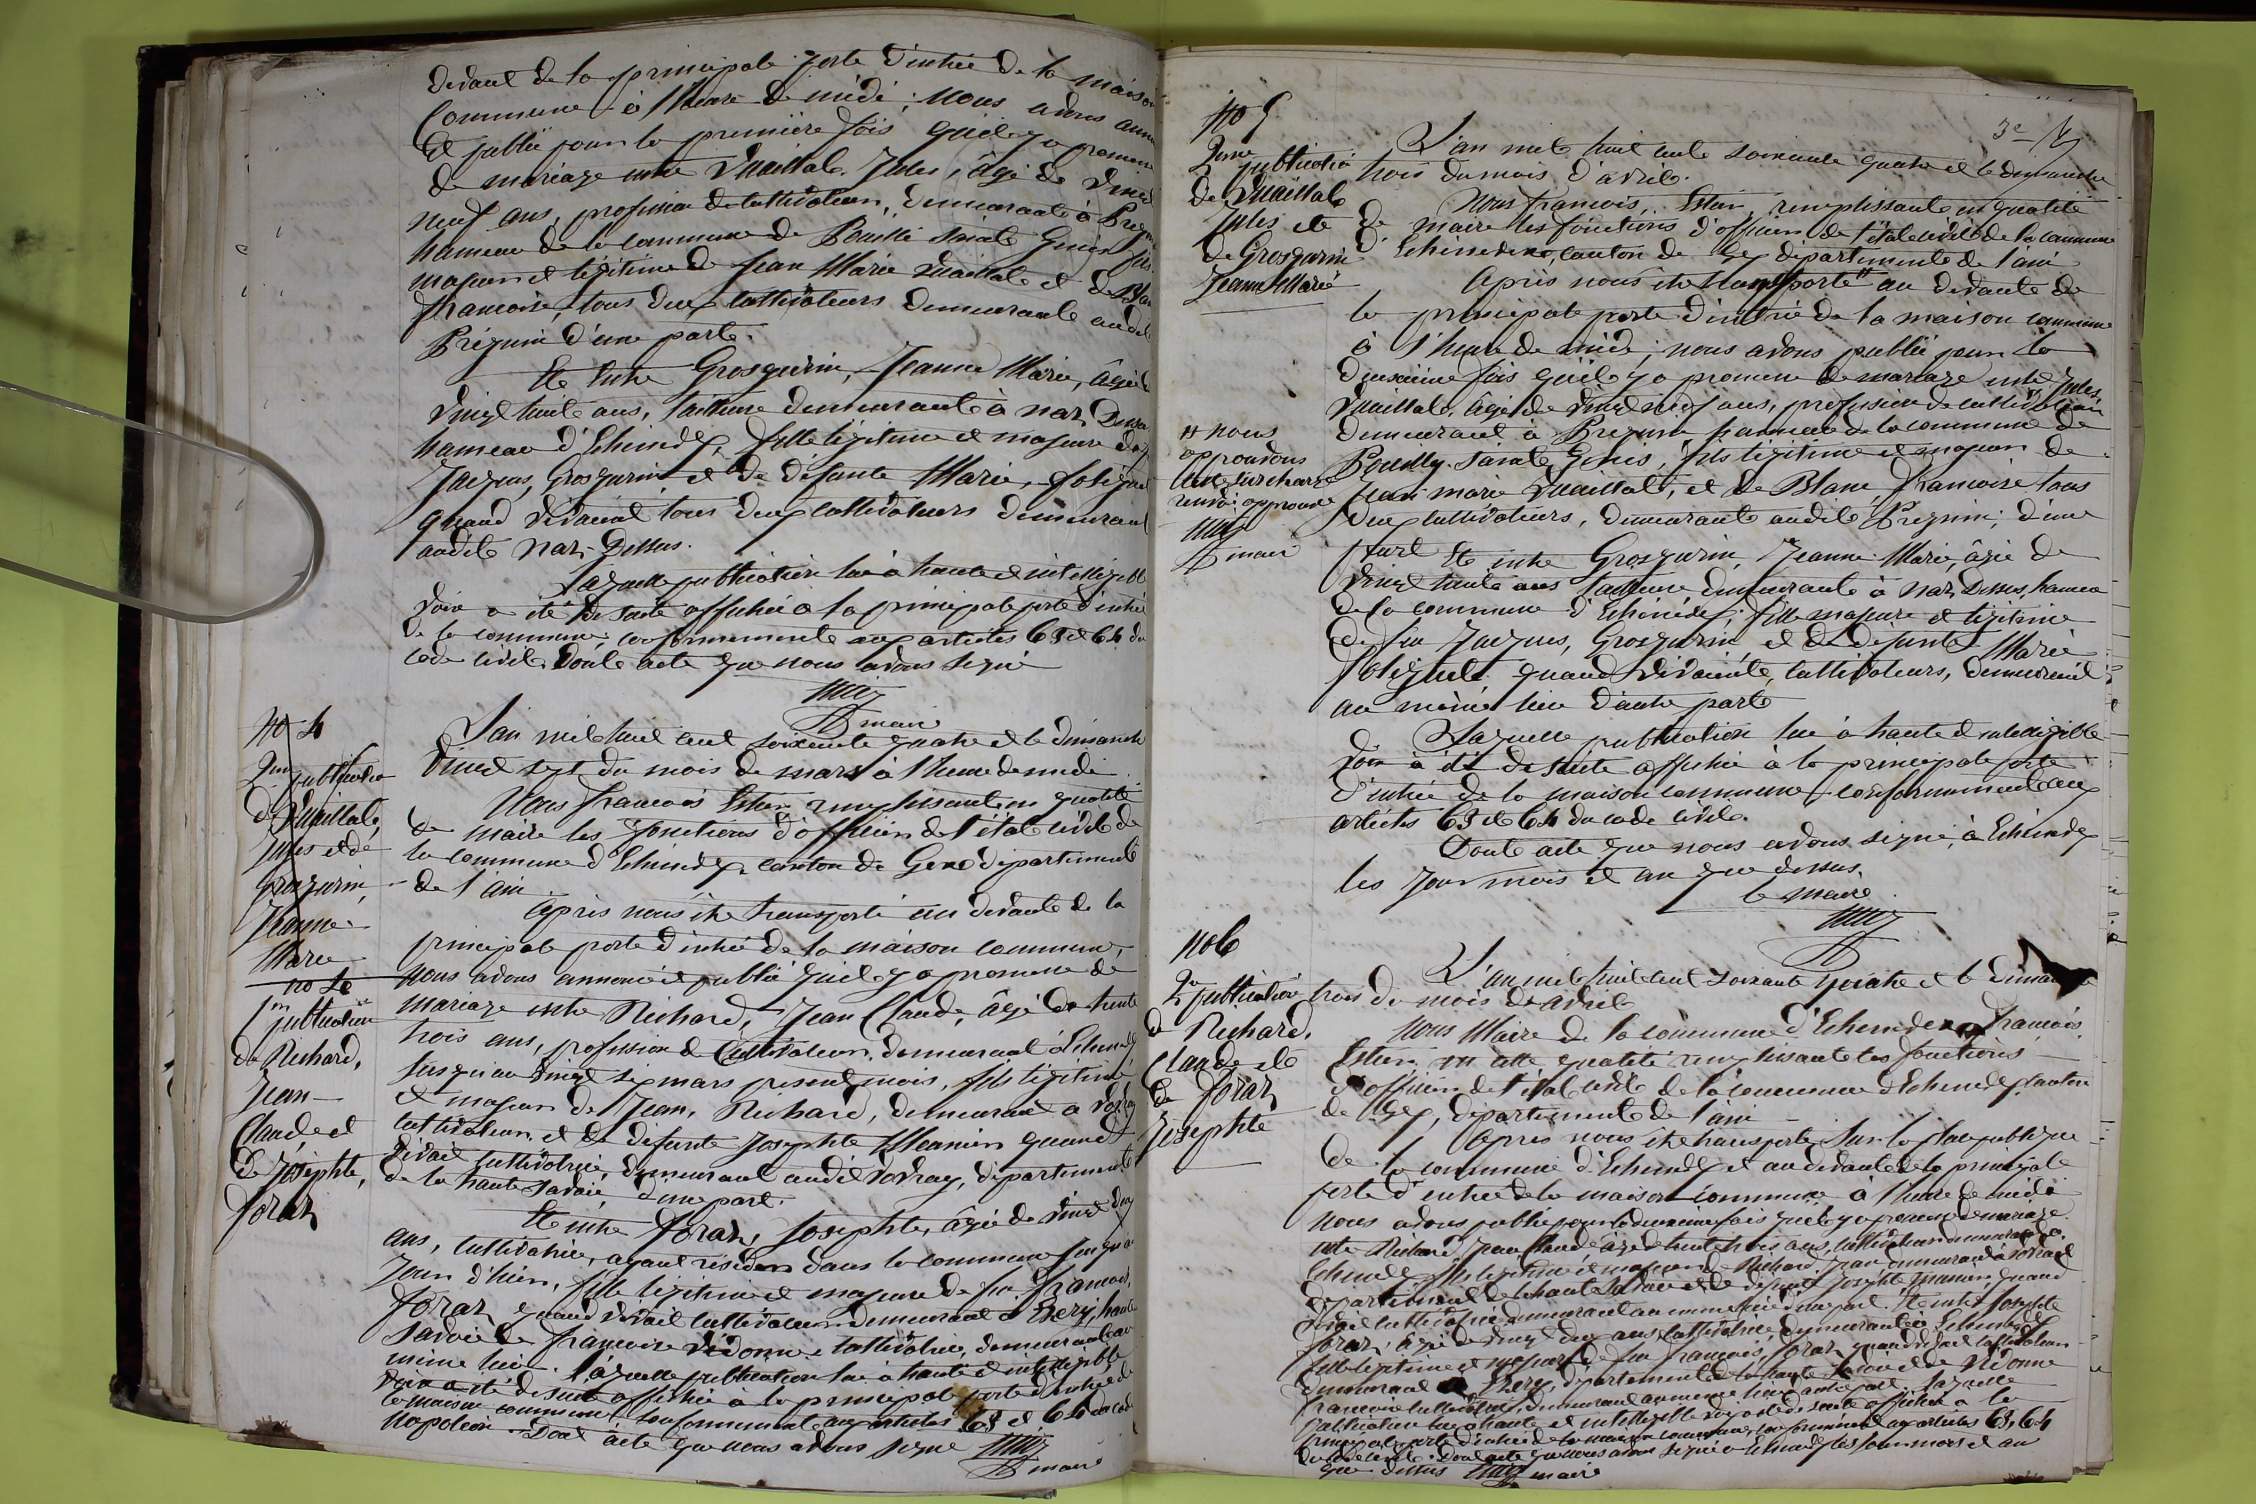 devant de la principale porte d'entrée de la maison
Commune à l'heure de midi; nous avons
et publié pour la première fois qu'il y a promesse
de mariage entre Vuaillat Jules, âgé de vingt
neuf ans, profession de cultivateur, demeurant à
hameau de la commune de Pouilli Saint Genis fils
majeur et légitime de Jean Marie Vuaillat et de Blanc
françoise, tous deux cultivateurs demeurant audit
Prégnin d'une part.
Et entre Grosgurin, Jeanne Marie, âgée de
vingt huit ans, tailleuse demeurante à naz Dessus
hameau d'Echenevex, fille légitime et majeure de
Jacques, Grosgurin et de défunte Marie,
quand vivaient tous deux cultivateurs demeurant
audit Naz-Dessus.
Laquelle publication lue à haute et intelligible
voix a été de suite affichée à la principale porte d'entrée
de la commune, conformément aux articles 63 et 64 du
code civil. Dont acte que nous avons signé
maire
No 4
2me publication
de Vuaillat,
Jules et de
Grosgurin,
Jeanne
Marie
No 4
1re publication
de Richard,
Jean
Claude et
de Josephte,
foraz
L'an mil huit cent soixante quatre et le dimanche
vingt sept du mois de mars à l'heure de midi
Nous françois remplissant en qualité
de maire les fonctions d'officier de l'état civil de
la commune d'Echenevex canton de Gex département
de l'ain.
Après nous être transporté au devant de la
principale porte d'entrée de la maison commune,
nous avons annoncé et publié qu'il y a promesse de
mariage entre Richard, Jean Claude, âgé de trente
trois ans, profession de Cultivateur, demeurant à Echenevex
jusqu'au vingt six mars présent mois, fils légitime
et majeur de Jean, Richard, demeurant à
cultivateur, et de défunte Josephte quand
vivait cultivatrice, demeurant audit département
de la haute Savoie, d'une part.
Et entre foraz, Josephte, âgée de vingt deux
ans, cultivatrice, ayant résidée dans la commune jusqu'au
jour d'hier, fille légitime et majeure de feu françois,
foraz quand vivait cultivateur demeurant à haute
Savoie et de françoise Vidonne cultivatrice, demeurant au
même lieu. Laquelle publication lue à haute et intelligible
voix a été de suite affichée à la principale porte d'entrée de
la maison commune conformément aux articles 63 et 64 du code
Napoléon. Dont acte que nous avons signé
maire
3e
No 5
2me publication
de Vuaillat
Jules et de
de Grosgurin
Jeanne Marie
nous
approuvons
une surcharge
renvoi approuvé
maire
L'an mil huit cent soixante quatre et le dimanche
trois du mois d'avril.
Nous françois, remplissant en qualité
de maire les fonctions d'officier de l'état civil de la commune
d'Echenevex, canton de Gex département de l'ain
Après nous être transporté au devant de
la principale porte d'entrée de la maison commune
à l'heure de midi; nous avons publié pour la
deuxième fois qu'il y a promesse de mariage entre Jules
Vuaillat, âgé de vingt neuf ans, profession de cultivateur
demeurant à Pregnin hameau de la commune de
Pouilly Saint Genis, fils légitime et majeur de
Jean marie Vuaillat, et de Blanc françoise tous
deux cultivateurs, demeurant audit Pregnin; d'une
part Et entre Grosgurin, Jeanne Marie, âgée de
vingt huit ans tailleuse demeurante à naz Dessus, hameau
de la commune d'Echenevex; fille majeure et légitime
de feu Jacques, Grosgurin et de défunte Marie
quand vivaient, cultivateurs, demeurant
au même lieu d'autre part
Laquelle publication lue à haute et intelligible
voix a été de suite affichée à la principale porte
d'entrée de la maison commune conformément aux
articles 63 et 64 du code civil.
Dont acte que nous avons signé, à Echenevex
les jour mois et an que dessus
le maire
No 6
2e publication
de Richard,
Claude et
de foraz
Josephte
L'an mil huit cent soixante quatre et le dimanche
trois du mois d'avril
Nous Maire de la commune d'Echenevex françois
en cette qualité remplissant les fonctions
d'officier de l'état civil de la commune d'Echenevex, canton
de Gex, département de l'ain
Après nous être transporté sur la place publique
de la commune d'Echenevex et au devant de la principale
porte d'entrée de la maison commune à l'heure de midi
nous avons publié pour la deuxième fois qu'il y a promesse de mariage
entre Richard, Jean Claude âgé de trente trois ans, cultivateur demeurant à
Echenevex fils légitime et majeur de Richard Jean demeurant à
département de la haute Savoie et de défunte Josephte quand
vivait cultivatrice demeurant au même lieu d'une part. Et entre Josephte
foraz, âgée de vingt deux ans, cultivatrice, demeurante à Echenevex
fille légitime et majeure de feu françois, foraz quand vivait cultivateur
demeurant à département de la haute Savoie et de Vidonne
françoise cultivatrice, demeurant au même lieu d'autre part. Laquelle
publication lue à haute et intelligible voix a été de suite affichée à la
principale porte d'entrée de la maison commune, conformément aux articles 63, 64
du code civil. Dont acte que nous avons signé à Echenevex les jour mois et an
que dessus maire